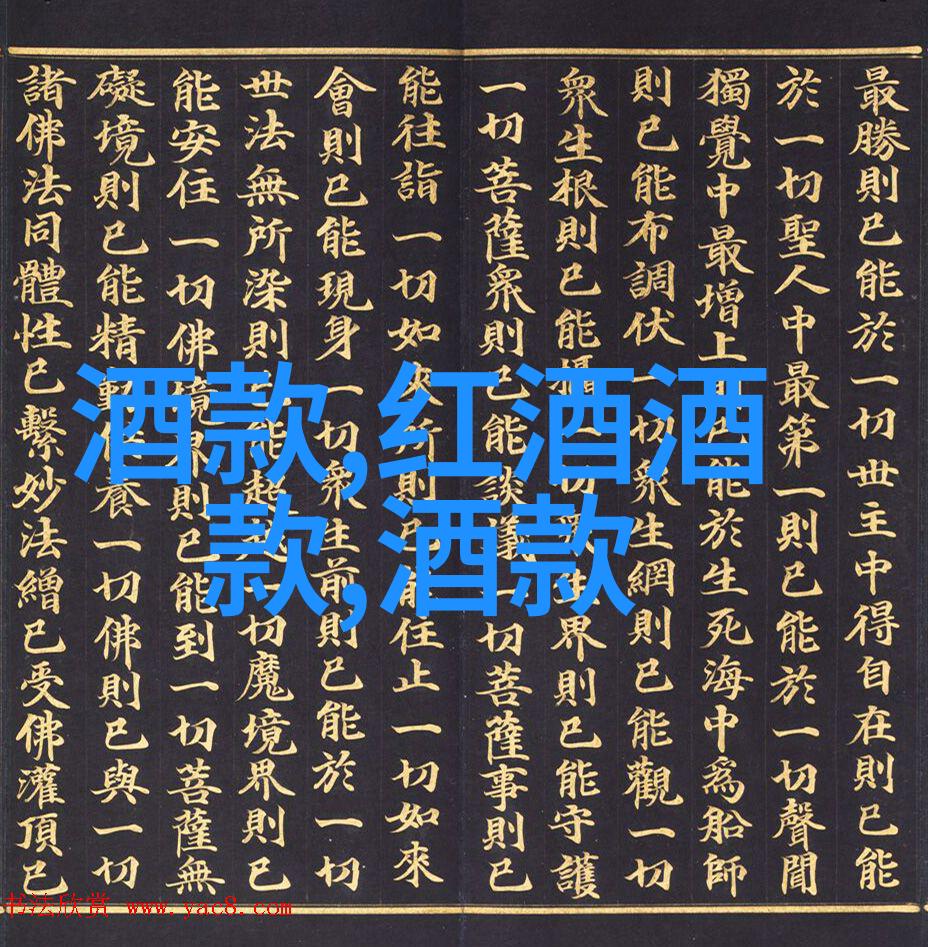 最勝則已能於一切世主中得自在則已能
於一切聖人中最第一則已能於一切聲聞
獨覺中最增上則已能於生死海中爲船師
則已能布調伏一切衆生網則已能觀一切
衆生根則已能攝一切衆生界則已能守護
一切菩薩衆則已能談議一切菩薩事則已
能往詣一切如來所則已能住止一切如來
會則已能現身一切衆生前則已能於一切
世法無所染則已能超越一切魔境界則已
能安住一切佛境界則已能到一切菩薩無
礙境則已能精勤供養一切佛則已與一切
諸佛法同體性已繫妙法繒已受佛灌頂已
酒款,红酒酒
款,酒款
书法欣赏 www.yac8.com